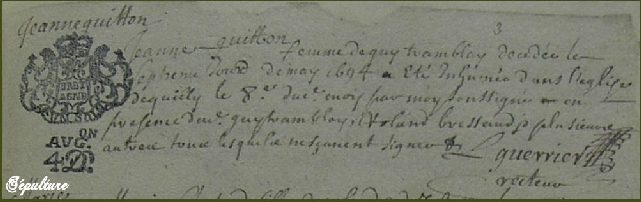 Jeanne quitton
3
Jeanne quitton femme de guy tramblay decedée le
septieme jour de may 1694 a Eté Inhumée dans l'eglise
de quily le 8e dud. mois par moy soussigné en
presence dud. guy tramblay, Roland bressand & plusieurs
autres tous lesquels ne signent
BRETAGNE
AUG.ON
4D.
L guerrier
recteur
Sépulture